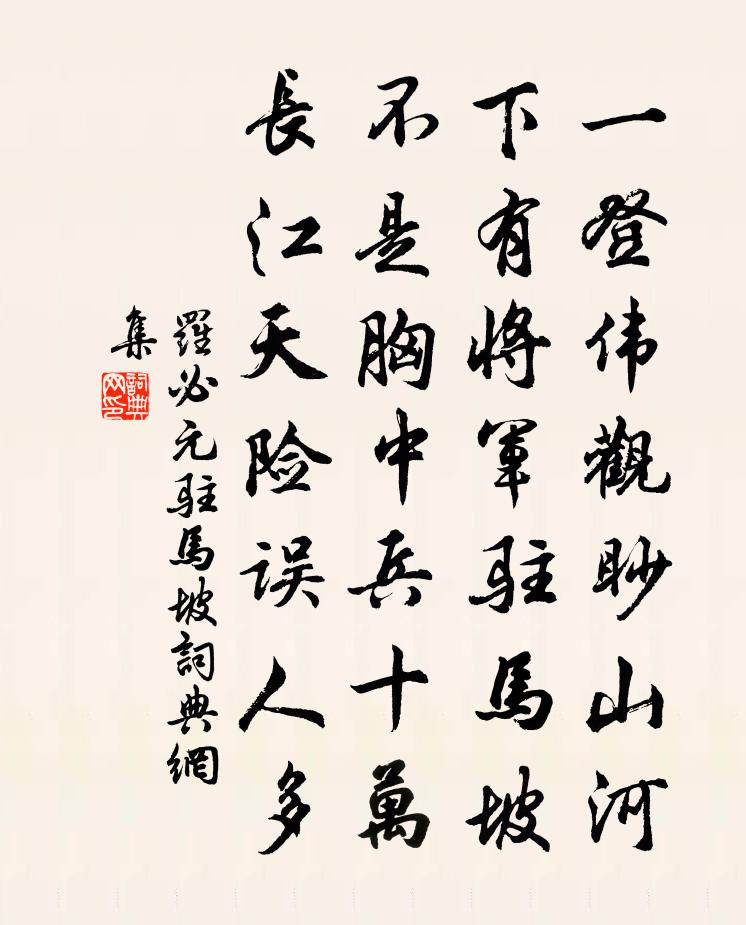 一登伟觀眇山河
下有將軍駐馬坡
不是胸中兵十萬
長江天险误人多
羅必元駐馬坡詞典網
集
詞典
网印